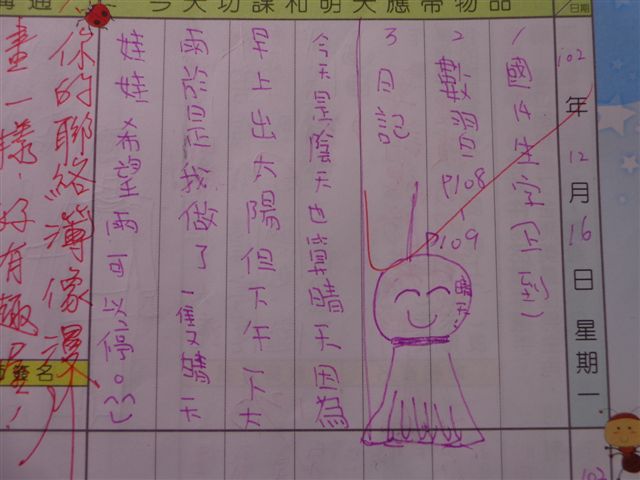 日期
102年12月16日 星期一
今天功課和明天應帶物品
1 國 生字
2 數習 P108~P109
3 日記
晴天!
今天是陰天也算晴天因為
早上出太陽但下午下大
雨於是我做了一隻晴天
娃娃希望雨可以停。:)
通
你的聯絡簿像漫
畫一樣,好有趣喔!
名
102